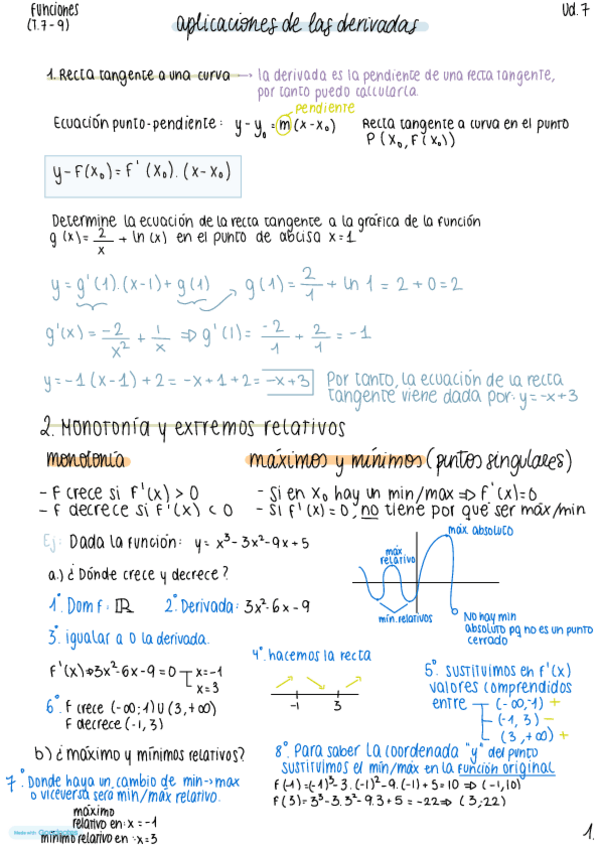 Funciones
(T.7-9)
aplicaciones de las derivadas
Ud.7
1. Recta tangente a una curva → la derivada es la pendiente de una recta tangente,
por tanto puedo calcularla.
pendiente
Ecuación punto-pendiente: y-y₀ = m (x-x₀)
Recta tangente a curva en el punto
P (x₀, F(x₀))
y-F(x₀) = F'(x₀).(x-x₀)
Determine la ecuación de la recta tangente a la gráfica de la función
g(x) = 2/x + ln(x) en el punto de abcisa x=1
y = g'(1).(x-1) + g(1) → g(1) = 2/1 + ln 1 = 2 + 0 = 2
g'(x) = -2/x² + 1/x ⇒ g'(1) = -2/1 + 2/1 = -1
y = -1(x-1) + 2 = -x + 1 + 2 = -x+3
Por tanto, la ecuación de la recta
tangente viene dada por: y = -x+3
2. Monotonía y extremos relativos
monotonía
- F crece si F'(x) > 0
- F decrece si F'(x) < 0
máximos y mínimos (puntos singulares)
- Si en x₀ hay un min/max ⇒ F'(x)=0
- Si F'(x) = 0, no tiene por qué ser máx/min
Ej: Dada la función: y = x³-3x²-9x+5
a.) ¿Dónde crece y decrece?
1º. Dom F: ℝ
2º. Derivada: 3x²-6x-9
máx absoluto
máx
relativo
mín. relativos
No hay min
absoluto pq no es un punto
cerrado
3º. igualar a 0 la derivada.
F'(x) ⇒ 3x²-6x-9 = 0
x=-1
x=3
4º. hacemos la recta
-1 3
5º. sustituimos en F'(x)
valores comprendidos
entre
(-∞,-1) +
(-1, 3) -
(3, +∞) +
6º. F crece (-∞;1) U (3,+∞)
F decrece (-1, 3)
b) ¿máximo y mínimos relativos?
7º. Donde haya un cambio de min → max
o viceversa será min/máx relativo.
máximo
relativo en: x = -1
mínimo relativo en: x=3
8º. Para saber la coordenada "y" del punto
sustituimos el mín/máx en la función original
F(-1) = (-1)³-3.(-1)²-9.(-1)+5 = 10 ⇒ (-1,10)
F(3) = 3³-3.3²-9.3+5 = -22 ⇒ (3;22)
Made with Goodnotes
1.